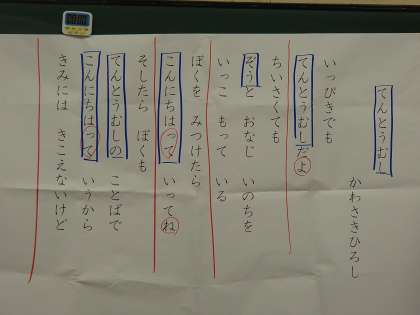 てんとうむし
かわさきひろし
いっぴきでも
てんとうむしだよ
ちいさくても
ぞうと おなじ いのちを
いっこ もって いる
ぼくを みつけたら
こんにちはって いってね
そしたら ぼくも
てんとうむしの ことばで
こんにちはって いうから
きみには きこえないけど